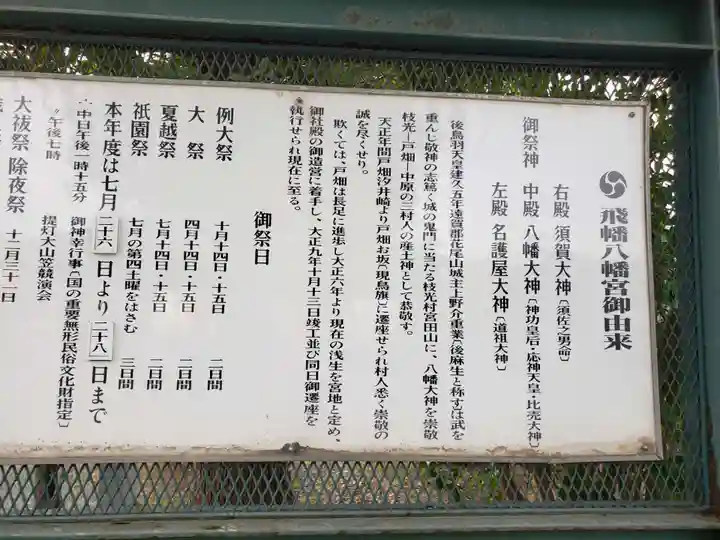 飛幡八幡宮御由来
右殿 須賀大神〔須佐之男命〕
御祭神 中殿 八幡大神〔神功皇后・応神天皇・比売大神〕
左殿 名護屋大神〔道祖大神〕
後鳥羽天皇建久五年遠賀郡花尾山城主上野介重業〔後麻生と称す〕は武を
重んじ敬神の志篤く城の鬼門に当たる枝光村宮田山に、八幡大神を崇敬
枝光―戸畑―中原の三村人の産土神として恭敬す。
天正年間戸畑汐井崎より戸畑お坂〔現鳥旗〕に遷座せられ村人悉く崇敬の
誠を尽くせり。
欺くては、戸畑は長足に進歩し大正六年より現在の浅生を宮地と定め、
御社殿の御造営に着手し、大正九年十月十三日竣工並び同日御遷座を
執行せられ現在に至る。
御祭日
例大祭 十月十四日・十五日 二日間
大祭 四月十四日・十五日 二日間
夏越祭 七月十四日・十五日 二日間
祇園祭 七月の第四土曜をはさむ 三日間
本年度は七月二十六日より二十八日まで
中日午後一時十五分 御神幸行事〔国の重要無形民俗文化財指定〕
〃午後七時 提灯大山笠競演会
大祓祭 除夜祭 十二月三十一日